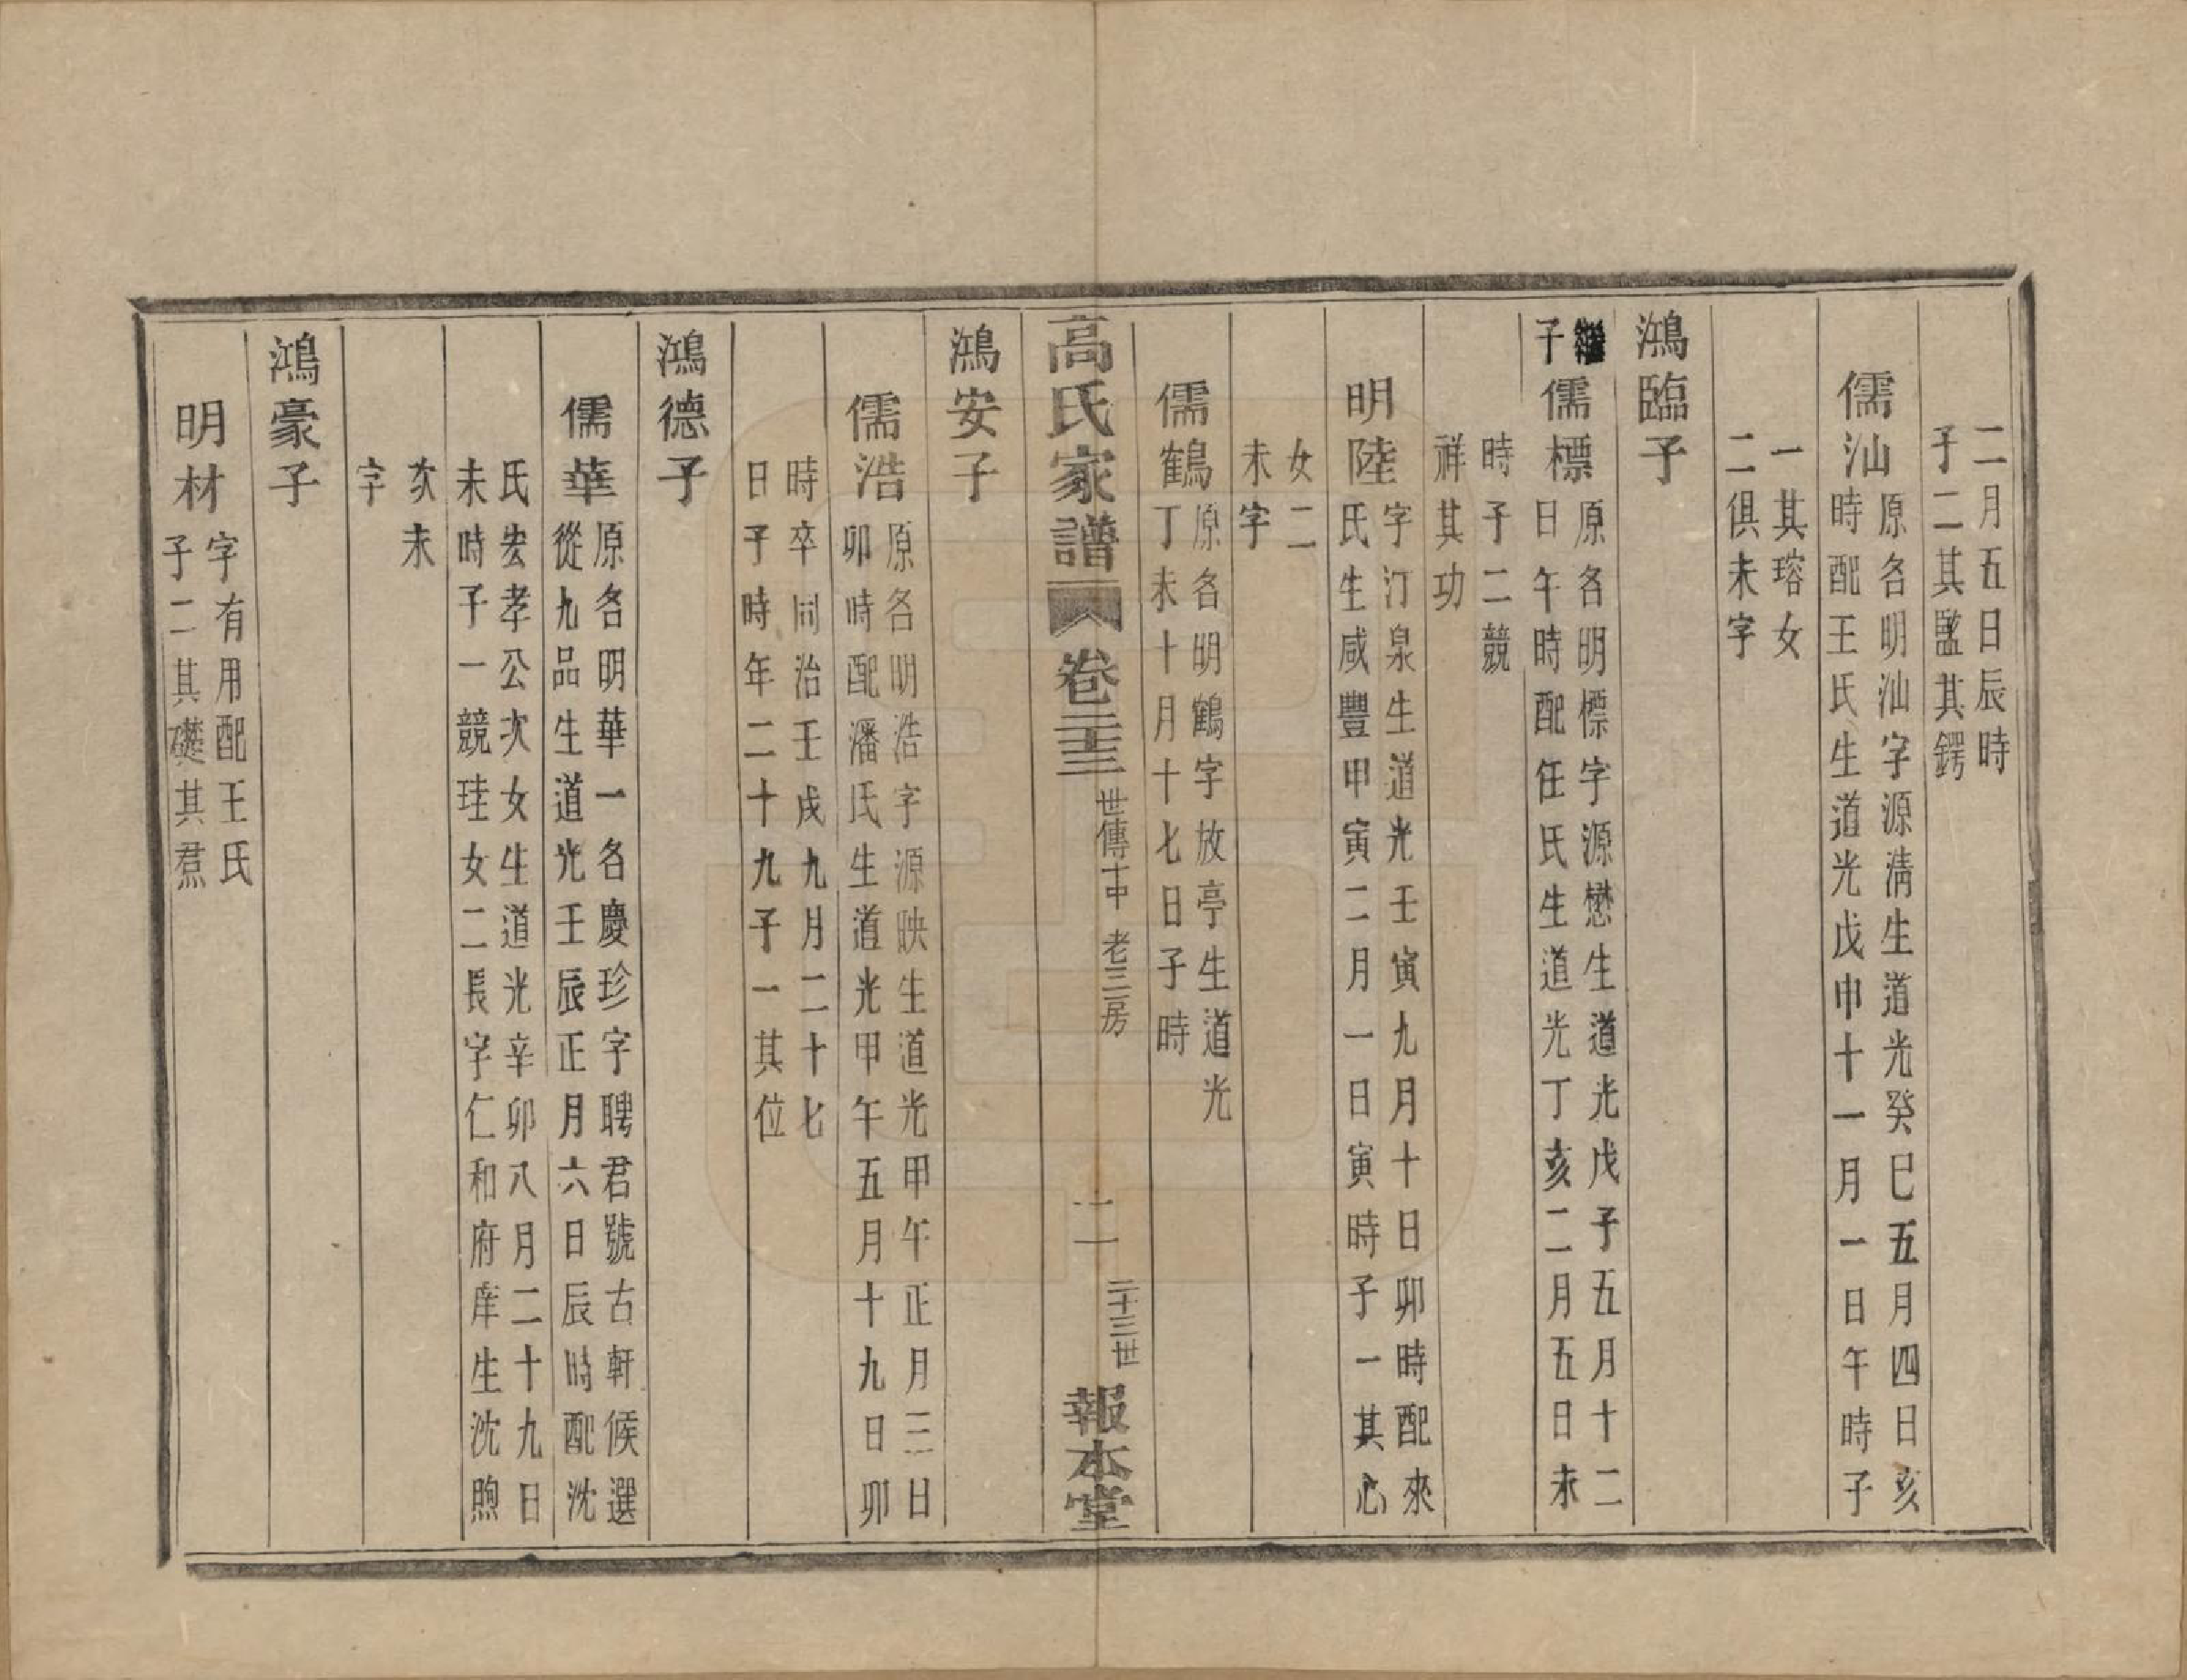 二月五日辰時
子二其監其鍔
儒汕
原名明汕字源淸生道光癸巳五月四日亥
時配王氏生道光戊申十一月一日午時子
一其瑢女
二俱未字
鴻臨子
繼子
儒標
原名明標字源懋生道光戊子五月十二
日午時配任氏生道光丁亥二月五日未
時子二競
祥其功
明陸
字汀泉生道光壬寅九月十日卯時配來
氏生咸豐甲寅二月一日寅時子一其心
女二
未字
儒鶴
原名明鶴字放亭生道光
丁未十月十七日子時
高氏家譜
卷二十三
世傳十中
老三房
二
二十三世
報本堂
鴻安子
儒浩
原名明浩字源映生道光甲午正月三日
卯時配潘氏生道光甲午五月十九日卯
時卒同治壬戌九月二十七
日子時年二十九子一其位
鴻德子
儒華
原名明華一名慶珍字聘君號古軒候選
從九品生道光壬辰正月六日辰時配沈
氏宏孝公次女生道光辛卯八月二十九日
未時子一競珪女二長字仁和府庠生沈煦
次未
字
鴻豪子
明材
字有用配王氏
子二其礎其焄